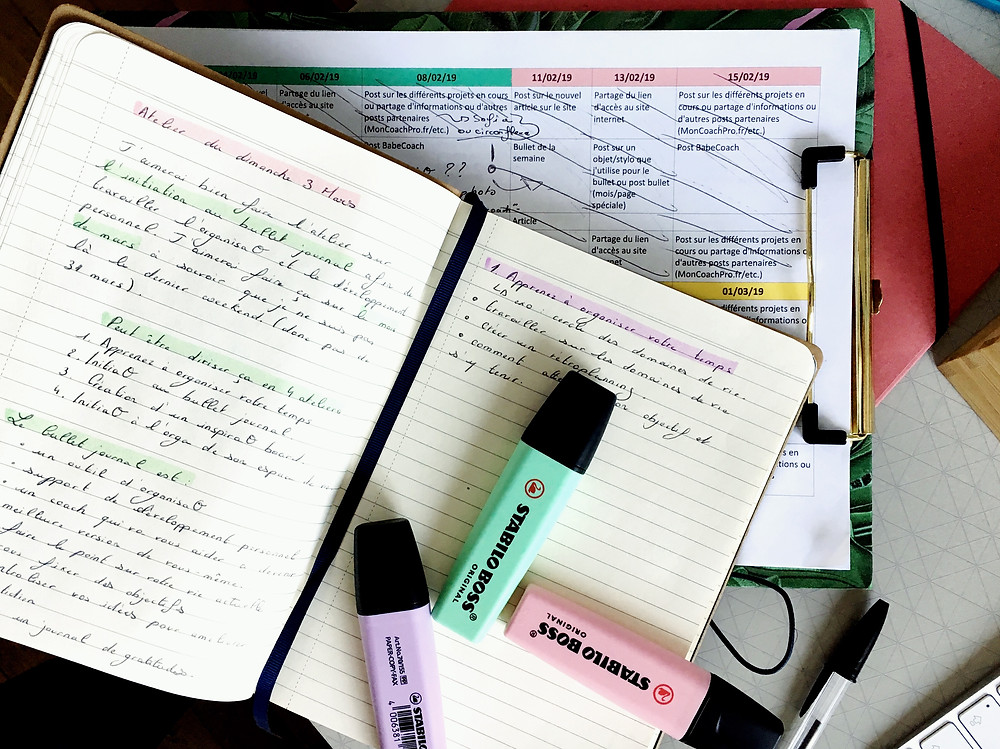 Atelier du dimanche 3 Mars
J'aimerai bien faire l'atelier sur
l'initiation au bullet journal afin de
travailler l'organisaO et le développement
personnel. J'aimerai faire ça sur le mois
de mars à savoir que je ne suis pas
là le dernier weekend (donc pas de
31 mars).
Peut être diviser ça en 4 ateliers
1. Apprenez à organiser votre temps
2. InitiaO au bullet journal
3. Création d'un inspiraO board.
4. InitiaO à l'orga de son espace de
Le bullet journal est :
• un outil d'organisaO
• support de développement personnel
• un coach qui va vous aider à devenir
meilleure version de vous même.
faire le point sur votre vie actuelle
vous fixer des objectifs
vos idées pour
un journal de gratitudes.
1. Apprenez à organiser votre temps
↳ exo cercle des domaines de vie.
• travailler sur les domaines de vie
• Créer un rétroplanning
• comment objectif et
s'y tenir.
06/02/19 08/02/19 11/02/19 13/02/19 15/02/19
Partage du lien
d'accès au site
Post sur les différents projets en cours
ou partage d'informations ou d'autres
posts partenaires
(MonCoachPro.fr/etc.)
Post du nouvel
article sur le site
Partage du lien
d'accès au site
internet
Post sur les différents projets en
cours ou partage d'informations ou
d'autres posts partenaires
(MonCoachPro.fr/etc.)
Sofia
ou circonflexe
Post BabeCoach
??
photo
Bullet de la
semaine
Post sur un
objet/stylo que
j'utilise pour le
bullet ou post bullet
(mois/page
spéciale)
Post BabeCoach
Article
Partage du lien
d'accès au site
internet
Post sur les différents projets en
cours ou partage d'informations ou
d'autres posts partenaires
(MonCoachPro.fr/etc.)
01/03/19
STABILO BOSS
ORIGINAL
STABILO BOSS
ORIGINAL
Art.No.70/155
PAPER-COPY-FAX
STABILO
4 006381